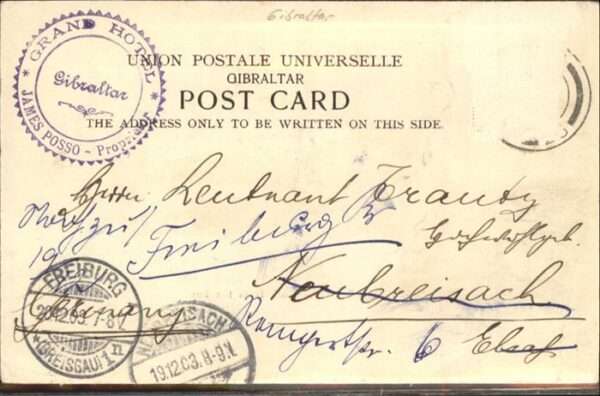 Gibraltar
GRAND HOTEL
Gibraltar
JAMES POSSO - Proprietor
UNION POSTALE UNIVERSELLE
GIBRALTAR
POST CARD
THE ADDRESS ONLY TO BE WRITTEN ON THIS SIDE.
Herrn Leutnant Trautz
Freiburg
Neubreisach
Germany
6 Elsaß
FREIBURG
BREISGAU 1 n
BREISACH
19.12.03. 8-9.V.